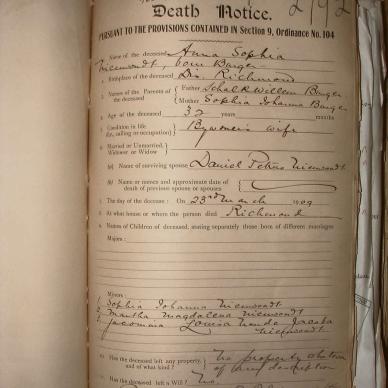 2792
Death Notice.
PURSUANT TO THE PROVISIONS CONTAINED IN Section 9, Ordinance No. 104
Name of the deceased Anna Sophia
born Burger
1. Birthplace of the deceased Dis. Richmond
2. Names of the Parents of the deceased { Father Schalk Willem Burger
Mother Sophia Johanna Burger
3. Age of the deceased 32 years months
4. Condition in life (be, calling or occupation) } Bywoner's wife
5. Married or Unmarried, Widower or Widow }
(a) Name of surviving spouse Daniel Petrus
(b) Name or names and approximate date of death of previous spouse or spouses
7. The day of the decease: On 23rd March 1909
8. At what house or where the person died Richmond
9. Names of Children of deceased, stating separately those born of different marriages
Majors:
Minors:
1. Sophia Johanna
2. Martha Magdalena
3. Louisa Jacoba
10. Has the deceased left any property and of what kind? } No property whatever
of any description
Has the deceased left a Will? No